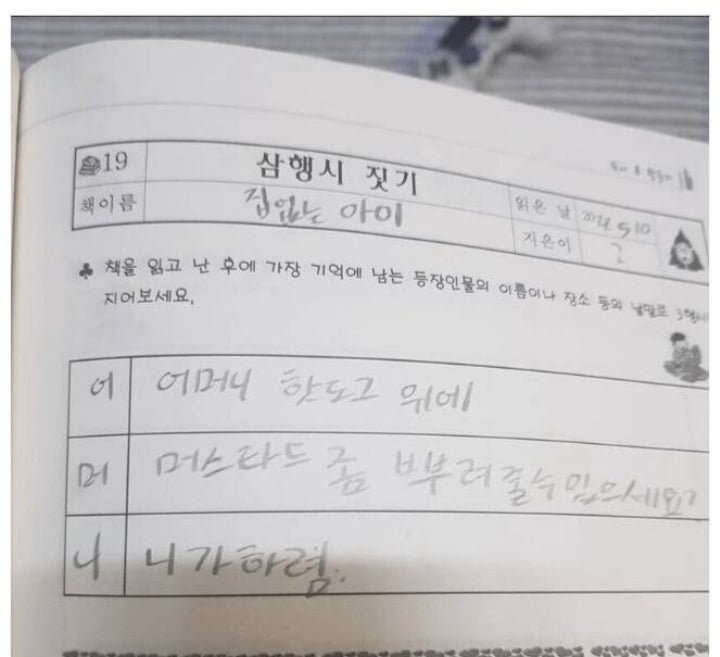 19
삼행시 짓기
책이름
집없는 아이
읽은 날
510
지은이
?
♣ 책을 읽고 난 후에 가장 기억에 남는 등장인물의 이름이나 장소 등의 낱말로 3행시
지어보세요.
어 어머니 핫도그 위에
머 머스타드 좀 뿌려줄수있으세요?
니 니가하렴.